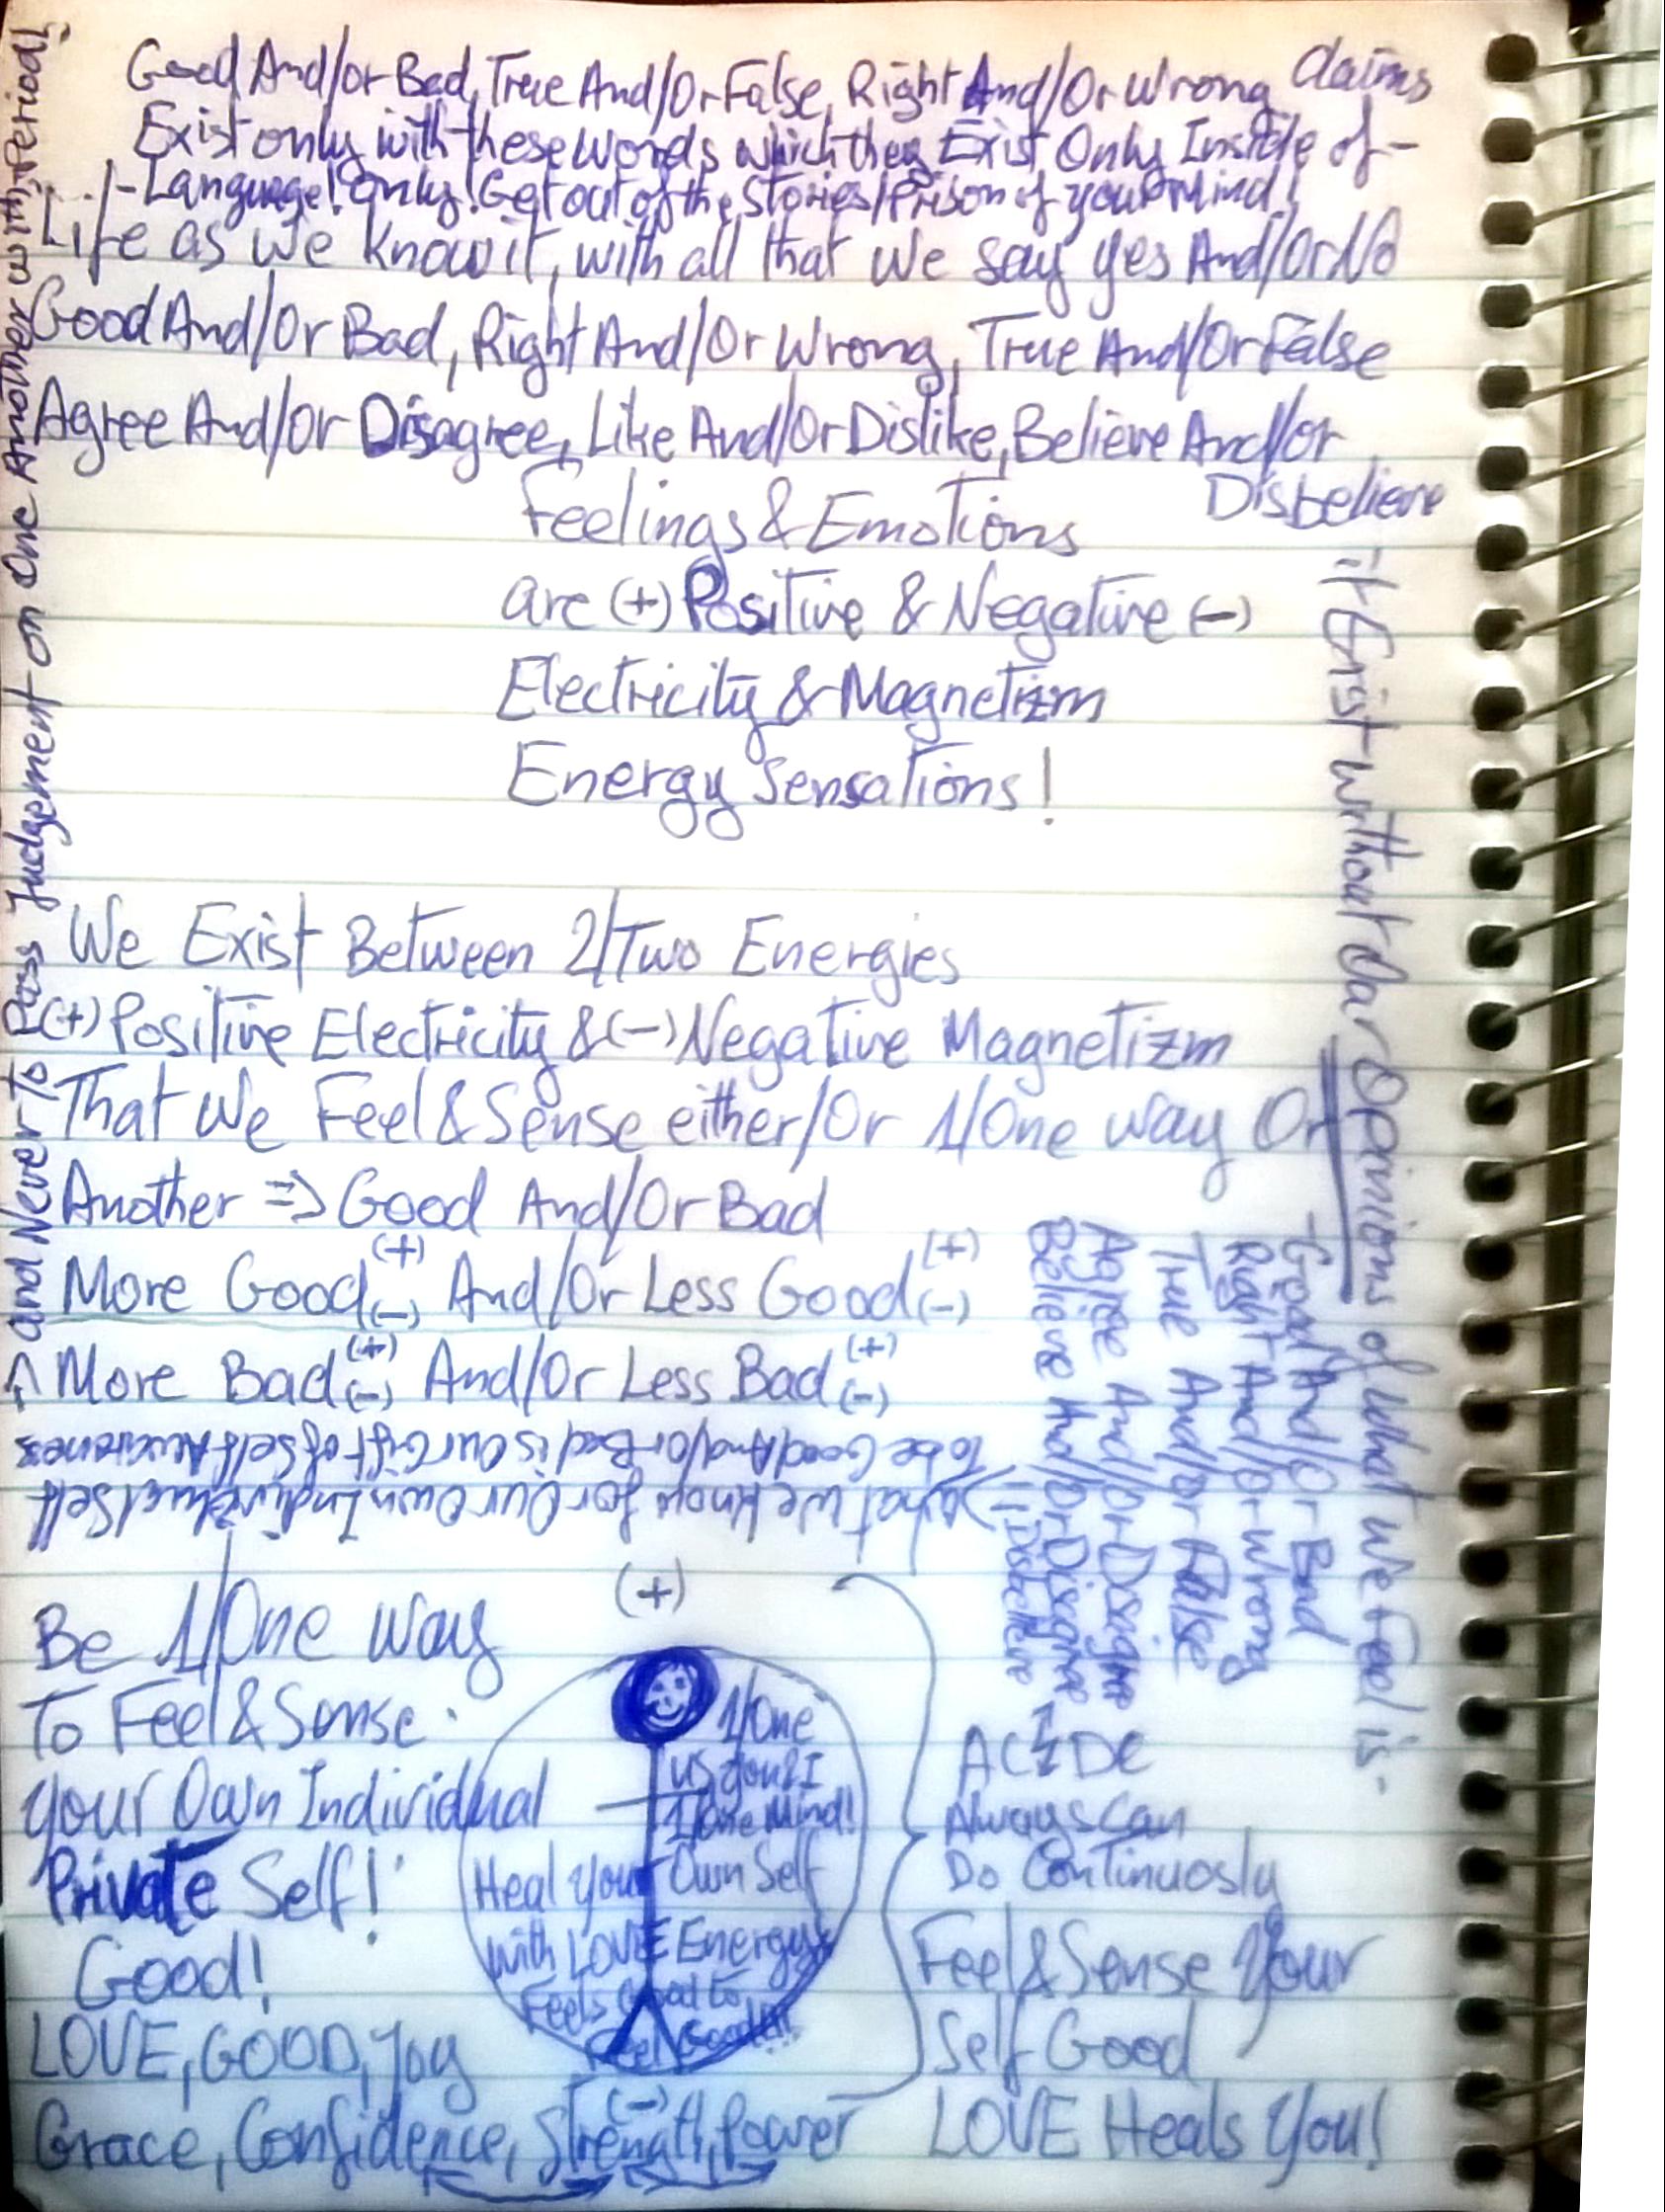 Good And/or Bad, True And/Or False, Right And/Or Wrong Claims
Exist only with these words which they Exist Only Inside of-
-Language! Only! Get out of the Stories/Prison of your Mind!
Life as We Know it, with all that we say yes And/Or No
Good And/Or Bad, Right And/Or Wrong, True And/Or False
Agree And/Or Disagree, Like And/Or Dislike, Believe And/or
Disbelieve
Feelings & Emotions
are (+) Positive & Negative (-)
Electricity & Magnetizm
Energy Sensations!
We Exist Between 2/Two Energies
(+) Positive Electricity & (-) Negative Magnetizm
That We Feel & Sense either/Or 1/One way Or
Another => Good And/Or Bad
More Good (+) (-) And/Or Less Good (+) (-)
=> More Bad (+) (-) And/Or Less Bad (+) (-)
What We Know for Our Own Individual Self
To be Good And/or Bad is Our Gift of Self Awareness
and Never To Pass Judgement on One Another with, Period!
it Exist without Our Opinions of what we Feel is-
-Good And/Or Bad
Right And/Or Wrong
True And/or False
Agree And/Or Disagree
Believe And/Or Disagree
Disbelieve
Be 1/One way
To Feel & Sense
Your Own Individual
Private Self!
Good!
LOVE, GOOD, Joy
Grace, Confidence, Strength, Power
(+)
1/One
us you & I
1/One Mind!
Heal Your Own Self
with LOVE Energy
Feels Good to
Feel Good!!!
(-)
AC DC
Always Can
Do Continuosly
Feel & Sense Your
Self Good
LOVE Heals You!